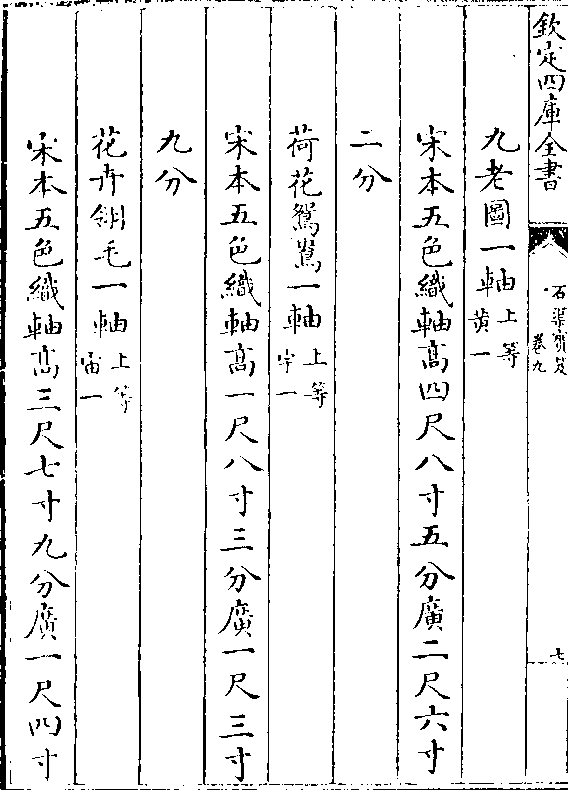 欽定四庫全書
石渠寶笈
卷九
七
九老圖一軸上等黃一
宋本五色織軸髙四尺八寸五分廣二尺六寸
二分
荷花鴛鴦一軸上等宇一
宋本五色織軸髙一尺八寸三分廣一尺三寸
九分
花卉翎毛一軸上等宙一
宋本五色織軸髙三尺七寸九分廣一尺四寸